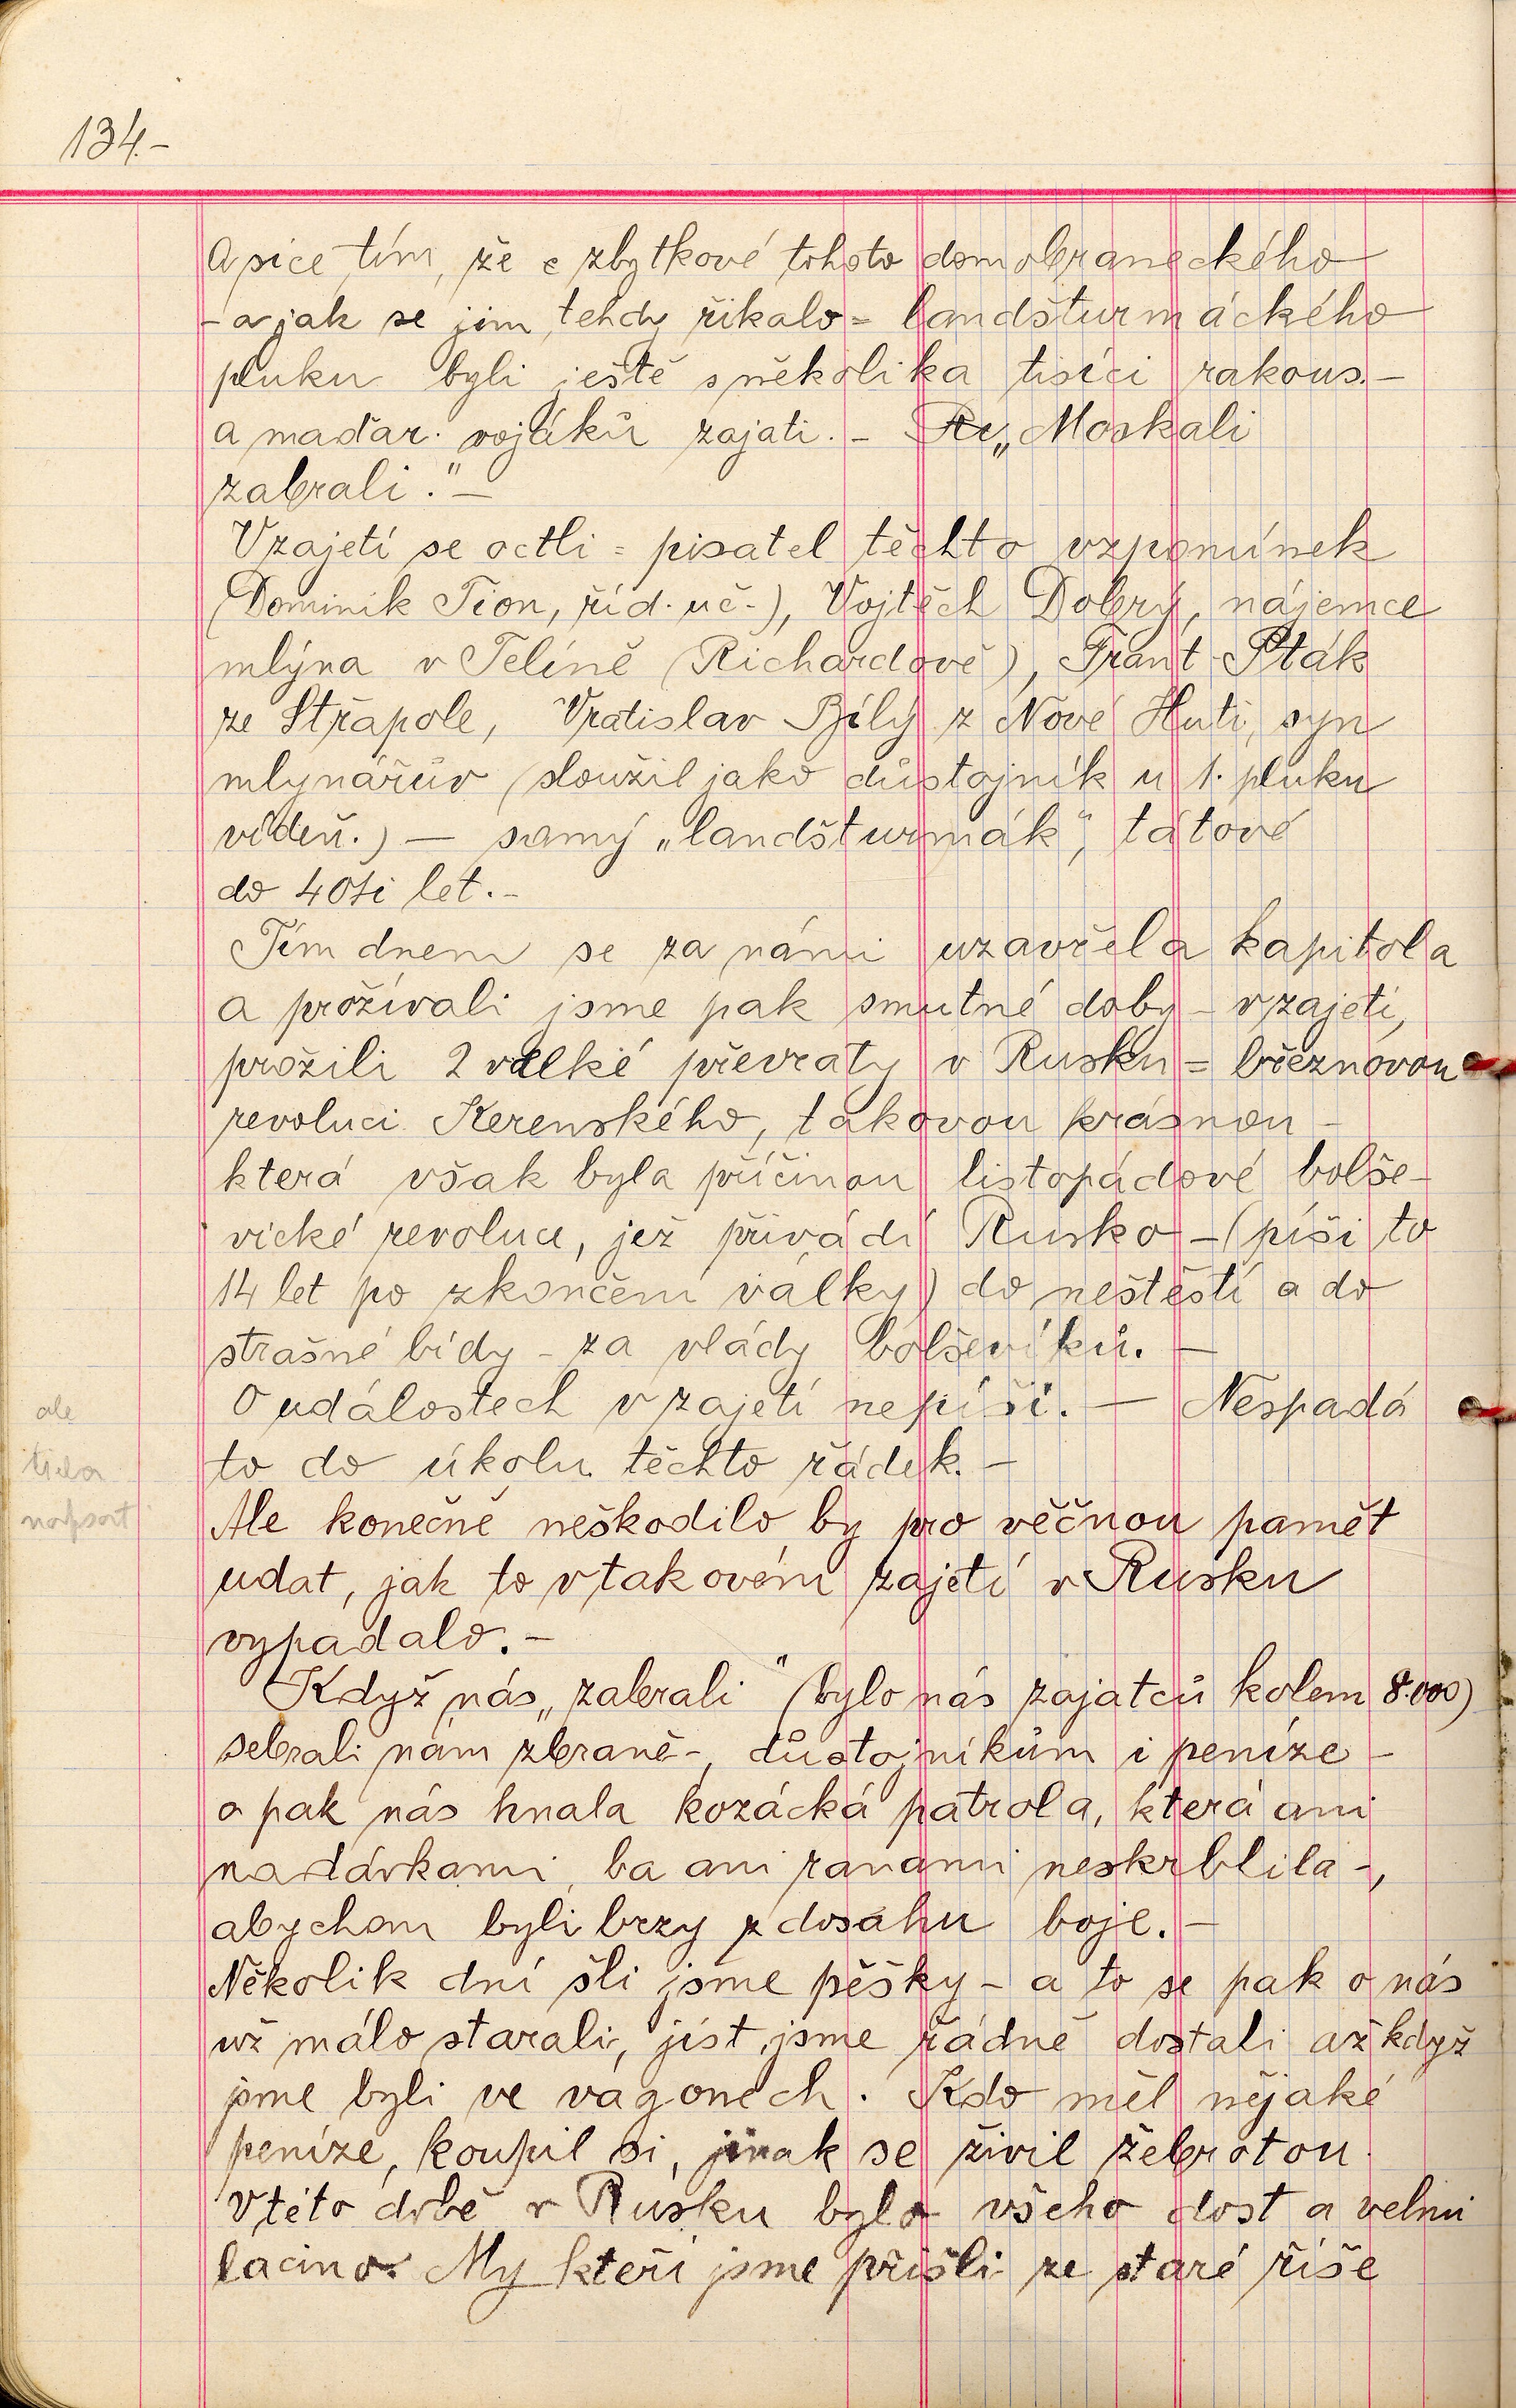 134.-
A sice tím, že c zbytkové tohoto domobraneckého
- a jak se jim tehdy řikalo = landšturmáckého
pluku byli ještě s několika tisíci rakous.-
a maďar. vojáků zajati. - „Moskali
zabrali." -
V zajetí se octli = pisatel těchto vzpomínek
(Dominik Tion, říd. uč.), Vojtěch Dobrý, nájemce
mlýna v Telíně (Richardově), Frant. Pták
ze Střapole, Vratislav Bílý z Nové Huti, syn
mlynářův (sloužil jako důstojník u 1. pluku
vídeň.) — samý „landšturmák", tátové
do 40ti let. -
Tím dnem se za námi uzavřela kapitola
a prožívali jsme pak smutné doby - v zajetí,
prožili 2 velké převraty v Rusku = březnovou
revoluci Kerenského, takovou krásnou -
která však byla příčinou listopádové bolše-
vické revoluce, jež přivádí Rusko - (píši to
14 let po zkončení války) do neštěstí a do
strašné bídy - za vlády bolševíků. -
O událostech v zajetí nepíši. — Nespadá
ale
to do úkolu těchto řádek. -
třeba
napsat
Ale konečně neškodilo by pro věčnou pamět
udat, jak to v takovém zajetí v Rusku
vypadalo. -
Když nás „zabrali" (bylo nás zajatců kolem 8.000)
sebrali nám zbraně -, důstojníkům i peníze -
a pak nás hnala kozácká patrola, která ani
nadávkami, ba ani ranami neskrblila -,
abychom byli brzy z dosahu boje. -
Několik dní šli jsme pěšky - a to se pak o nás
už málo starali, jíst jsme řádně dostali až když
jsme byli ve vagonech. Kdo měl nějaké
peníze, koupil si, jinak se živil žebrotou.
V této době v Rusku bylo všeho dost a velmi
lacino. My kteří jsme přišli ze staré říše